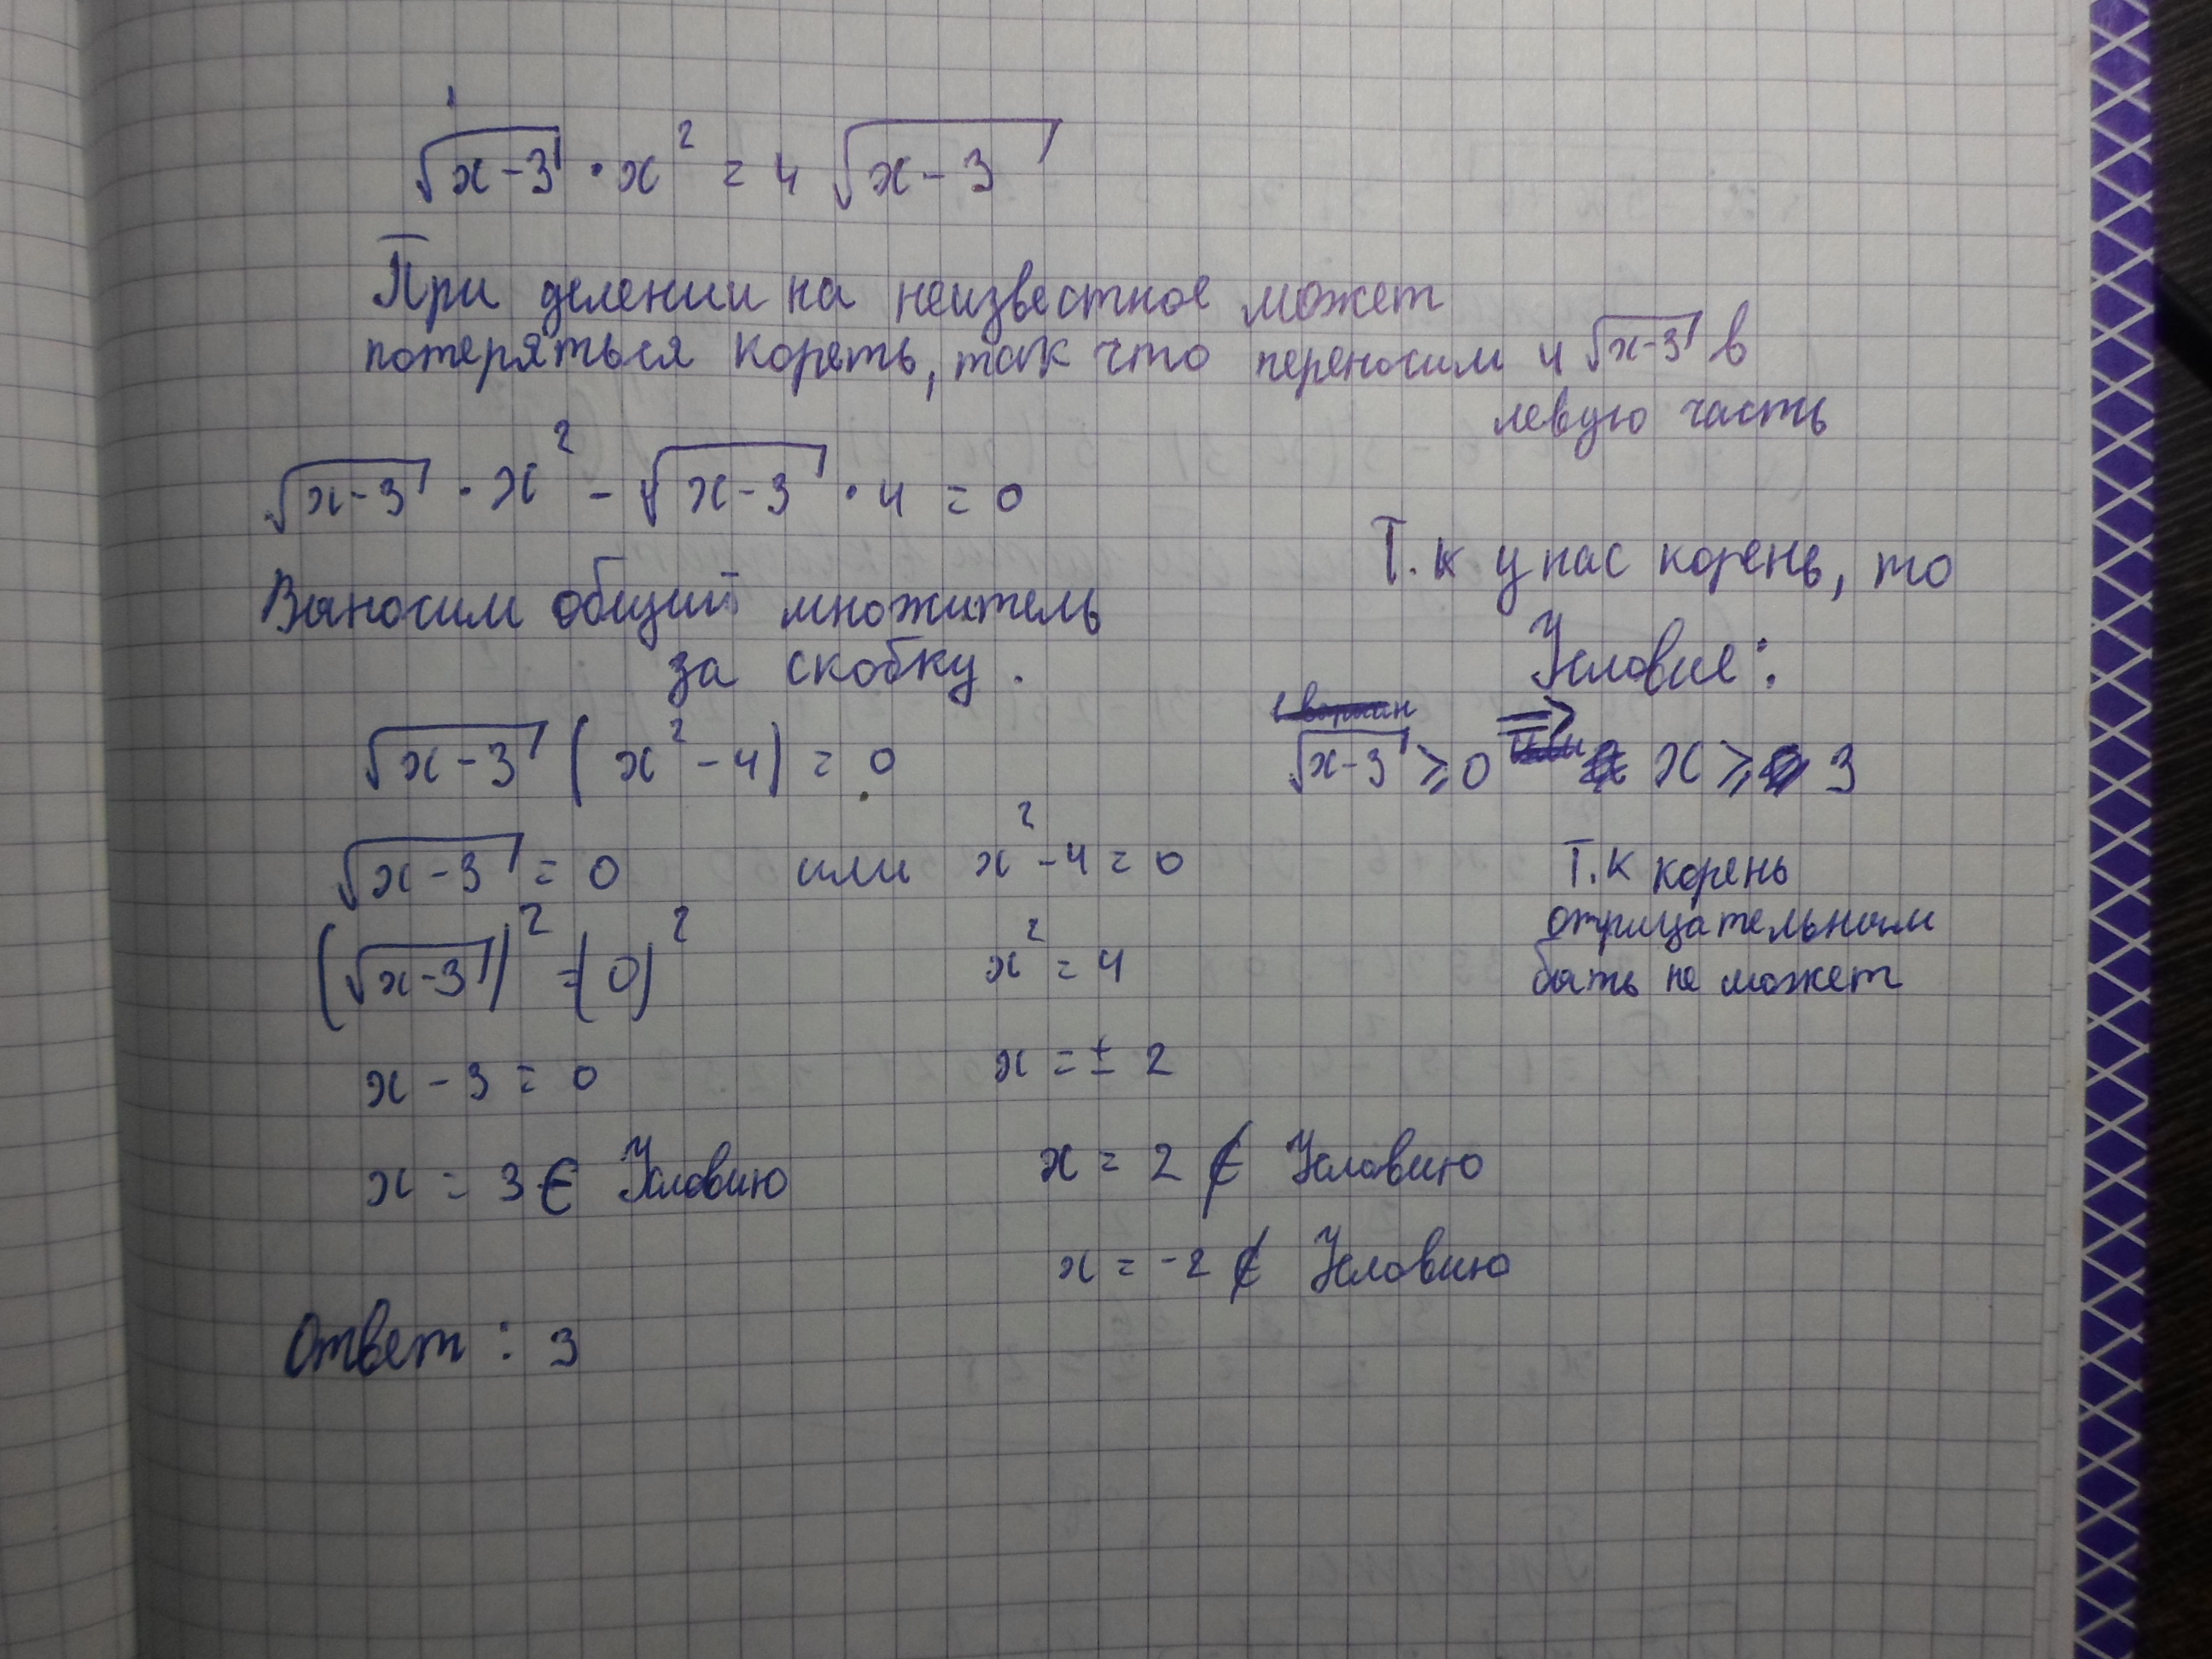 √(x-3) · x² = 4 √(x-3)
При делении на неизвестное может
потеряться корень, так что переносим 4 √(x-3) в
левую часть
√(x-3) · x² - √(x-3) · 4 = 0
Выносим общий множитель
за скобку.
√(x-3) (x² - 4) = 0
√(x-3) = 0 или x² - 4 = 0
(√(x-3))² = (0)² x² = 4
x - 3 = 0 x = ± 2
x = 3 ∈ Условию x = 2 ∉ Условию
x = -2 ∉ Условию
Ответ: 3
Т.к у нас корень, то
Условие:
√(x-3) ≥ 0 ⇒ x ≥ 3
Т.к корень
отрицательным
быть не может